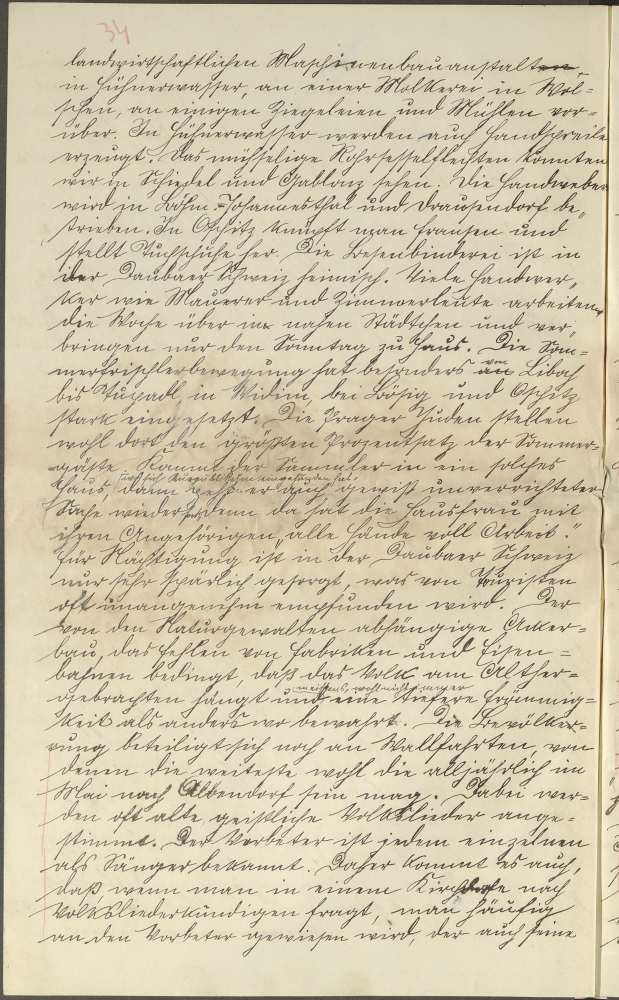 34
landwirtschaftlichen Maschinenbauanstalten,
in Hühnerwasser, an einer Molkerei in Wol-
schen, an einigen Ziegeleien und Mühlen vor-
über. In Hühnerwasser werden auch Handspreile
erzeugt. Das mühselige Rohrsesselflechten konnten
wir in Schiedel und Gablonz sehen. Die Handweber
wird in Böhm.-Johannesthal und Drausendorf be-
trieben. In Oschitz knüpft man Fransen und
stellt Tuchschuhe her. Die Besenbinderei ist in
der Daubaer Schweiz heimisch. Viele Handwer-
ker wie Maurer und Zimmerleute arbeiten
die Woche über in nahen Städtchen und ver-
bringen nur den Sonntag zu Haus. Die Som-
merfrischlerbewegung hat besonders von Liboch
bis Tupadl, in Widim, bei Bösig und Oschitz
stark eingesetzt. Die Prager Juden stellen
wohl dort den größten Prozentsatz der Sommer-
gäste. Kommt der Sammler in ein solches
Haus, dann geht er auch gewiß unverrichteter
Sache wieder, denn da hat die Hausfrau mit
ihren Angehörigen „alle Hände voll Arbeit."
Für Nächtigung ist in der Daubaer Schweiz
nur sehr spärlich gesorgt, was von Touristen
oft unangenehm empfunden wird. Der
von den Naturgewalten abhängige Acker-
bau, das Fehlen von Fabriken und Eisen-
bahnen bedingt, daß das Volk am Alther-
gebrachten hängt und meistens, wohl nicht immer
eine tiefere Frömmig-
keit als anderswo bewahrt. Die Bevölke-
rung beteiligt sich noch an Wallfahrten, von
denen die weiteste wohl die alljährlich im
Mai nach Albendorf sein mag. Dabei wer-
den oft alte, geistliche Volkslieder ange-
stimmt. Der Vorbeter ist jedem einzelnen
als Sänger bekannt. Daher kommt es auch,
daß wenn man in einem Kirchdorfe nach
Volksliederkundigen fragt, man häufig
an den Vorbeter gewiesen wird, der auch seine